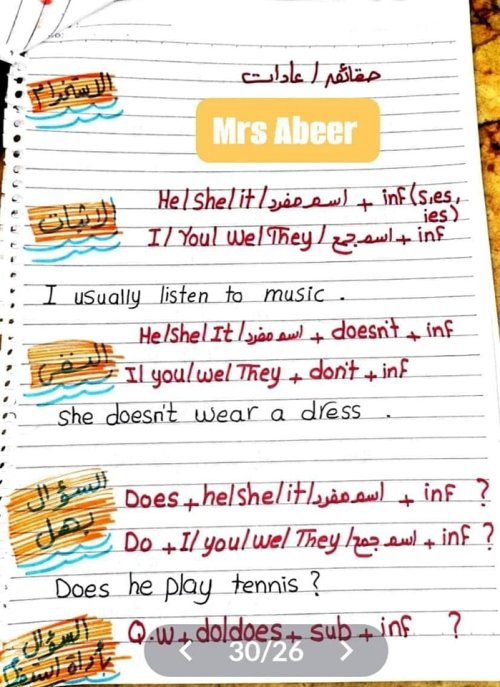 حقائق / عادات
الاستخدام
Mrs Abeer
He/she/it/اسم مفرد + inf (s,es,
ies)
الاثبات
I/ You/ We/They/ اسم جمع + inf
I usually listen to music .
He/she/It/اسم مفرد + doesn't + inf
النفى
I/ you/we/ They + don't + inf
she doesn't wear a dress .
السؤال
Does + he/she/it/اسم مفرد + inf ?
بهل
Do + I/ you/we/ They /اسم جمع + inf ?
Does he play tennis ?
السؤال
Q.w + do/does + sub + inf ?
30/26